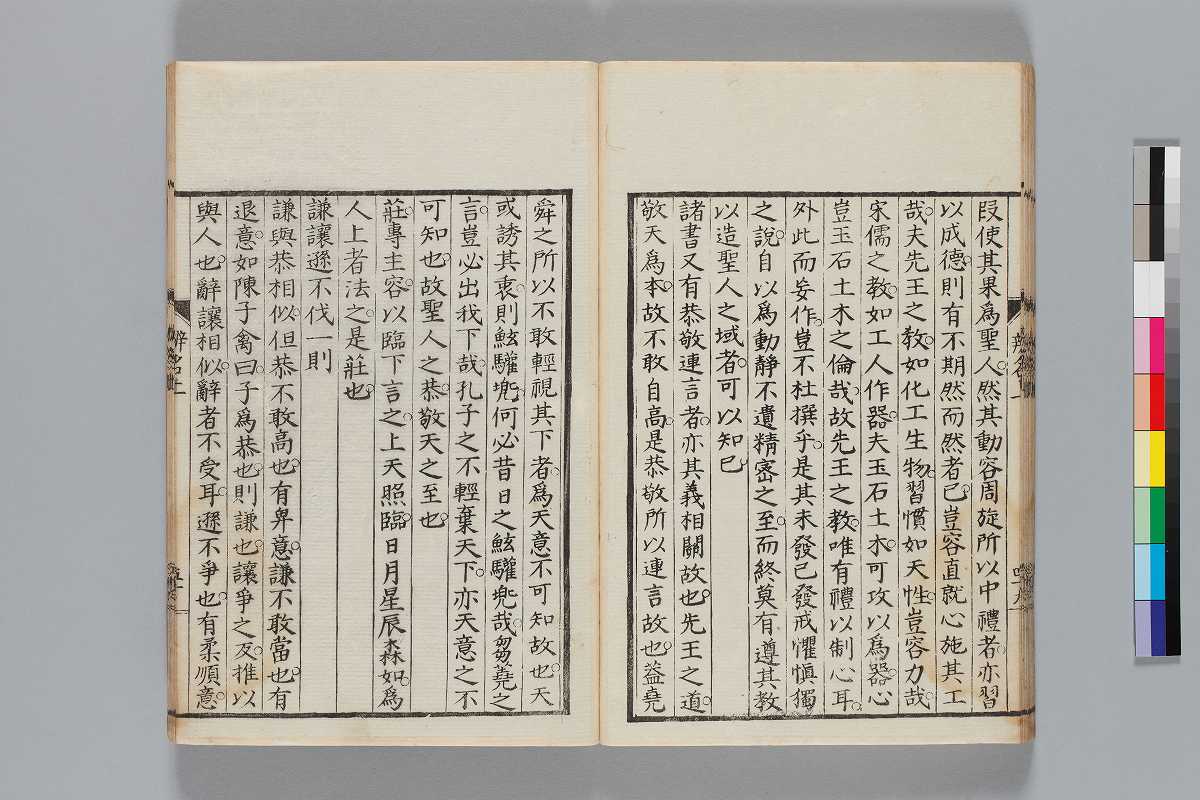 叚使其果爲聖人然其動容周旋所以中禮者亦習
以成德則有不期然而然者已豈容直就心施其工
哉夫先王之教如化工生物習慣如天性豈容力哉
宋儒之教如工人作器夫玉石土木可攻以爲器心
豈玉石土木之倫哉故先王之教唯有禮以制心耳
外此而妄作豈不杜撰乎是其未發已發戒懼愼獨
之說自以爲動靜不遺精密之至而終莫有遵其教
以造聖人之域者可以知已
諸書又有恭敬連言者亦其義相關故也先王之道
敬天爲本故不敢自高是恭敬所以連言故也益堯
舜之所以不敢輕視其下者爲天意不可知故也天
或誘其衷則鮌驩兜何必昔日之鮌驩兜哉芻蕘之
言豈必出我下哉孔子之不輕棄天下亦天意之不
可知也故聖人之恭敬天之至也
莊專主容以臨下言之上天照臨日月星辰森如爲
人上者法之是莊也
謙讓遜不伐一則
謙與恭相似但恭不敢高也有卑意謙不敢當也有
退意如陳子禽曰子爲恭也則謙也讓爭之反推以
與人也辭讓相似辭者不受耳遜不爭也有柔順意
辨名上